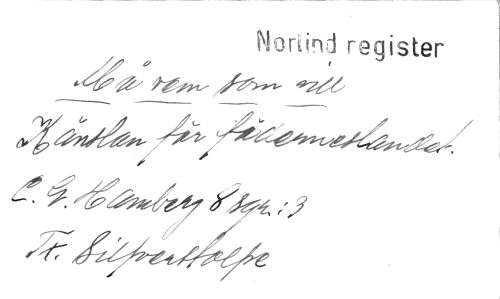 Norlind register
Må vem som vill
Känslan för fäderneslandet.
C. G. Hamberg 8 sgr: 3
Tx. Silfverstolpe